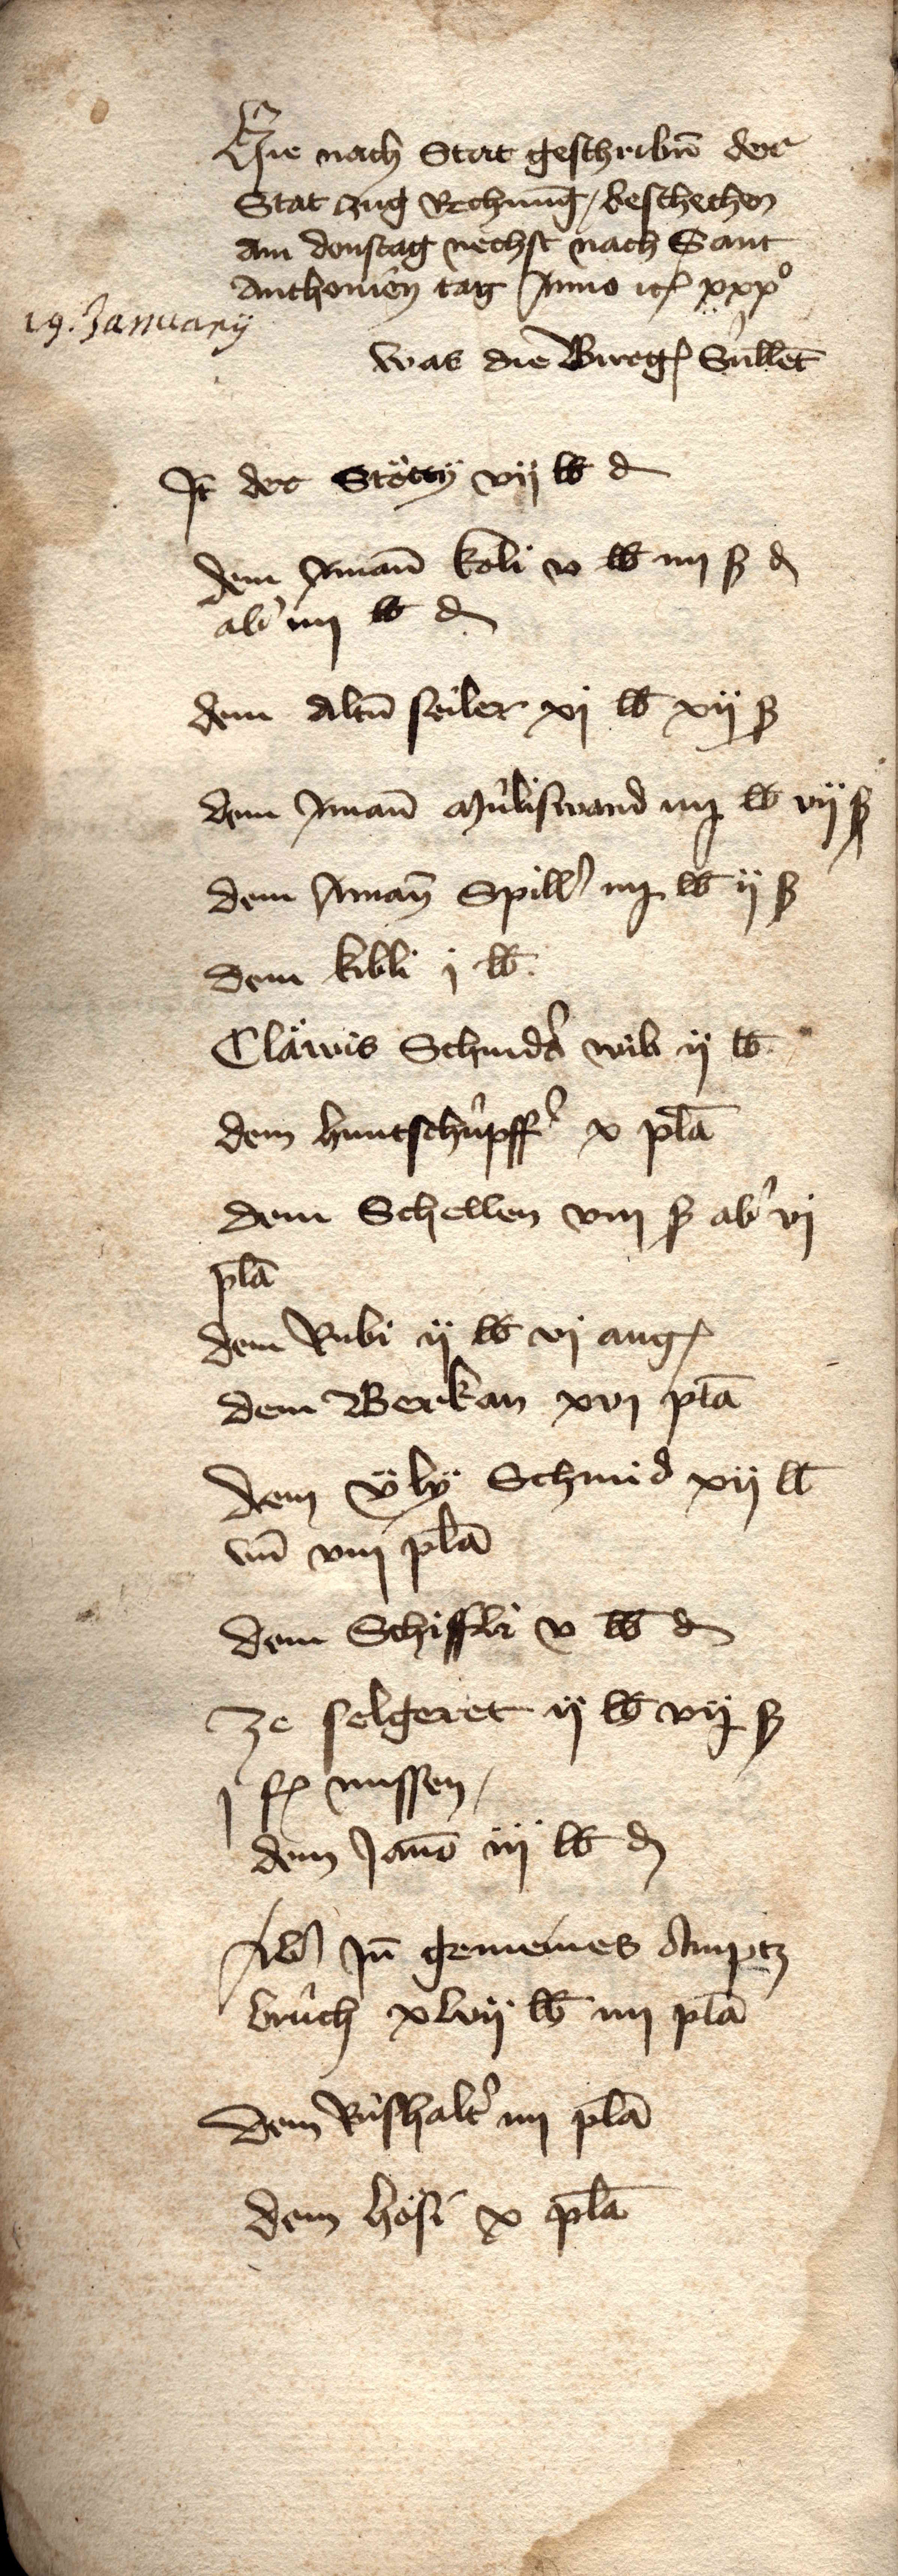 Hie nach Stat geschribn̄ der
Stat zug Rechnūng / beschechen
am donstag nechst nach Sant
Anthonien tag Anno ꝛc xxx°
19. January
was die Burger Süllēt
Jt der Stötty vij lb d
dem Aman̄ koli v lb iiij ß d
ab' iiij lb d
dem altn̄ seiler xj lb xij ß
dem Aman̄ Mûliswand iiij lb vij ß
dem Aman̄ Spill' iiij lb ij ß
dem kibli j lb.
Cläwis Schmid' wib ij lb.
dem huntschûpff' x plā
dem Schellen viij ß ab' vj
plā
dem Rubi ij lb vj ang
dem Berkan xvj plā
dem Üly Schmid xij lb
vn̄ viij plā
dem Schiffli v lb d
ze selgeret ij lb vij ß
j f nussen /
dem Janō iij lb d
Ab' Jn̄ gemeines Amptz
brûch xlvij lb iiij plā
dem Rûshalt' iiij plā
dem hösi x plā